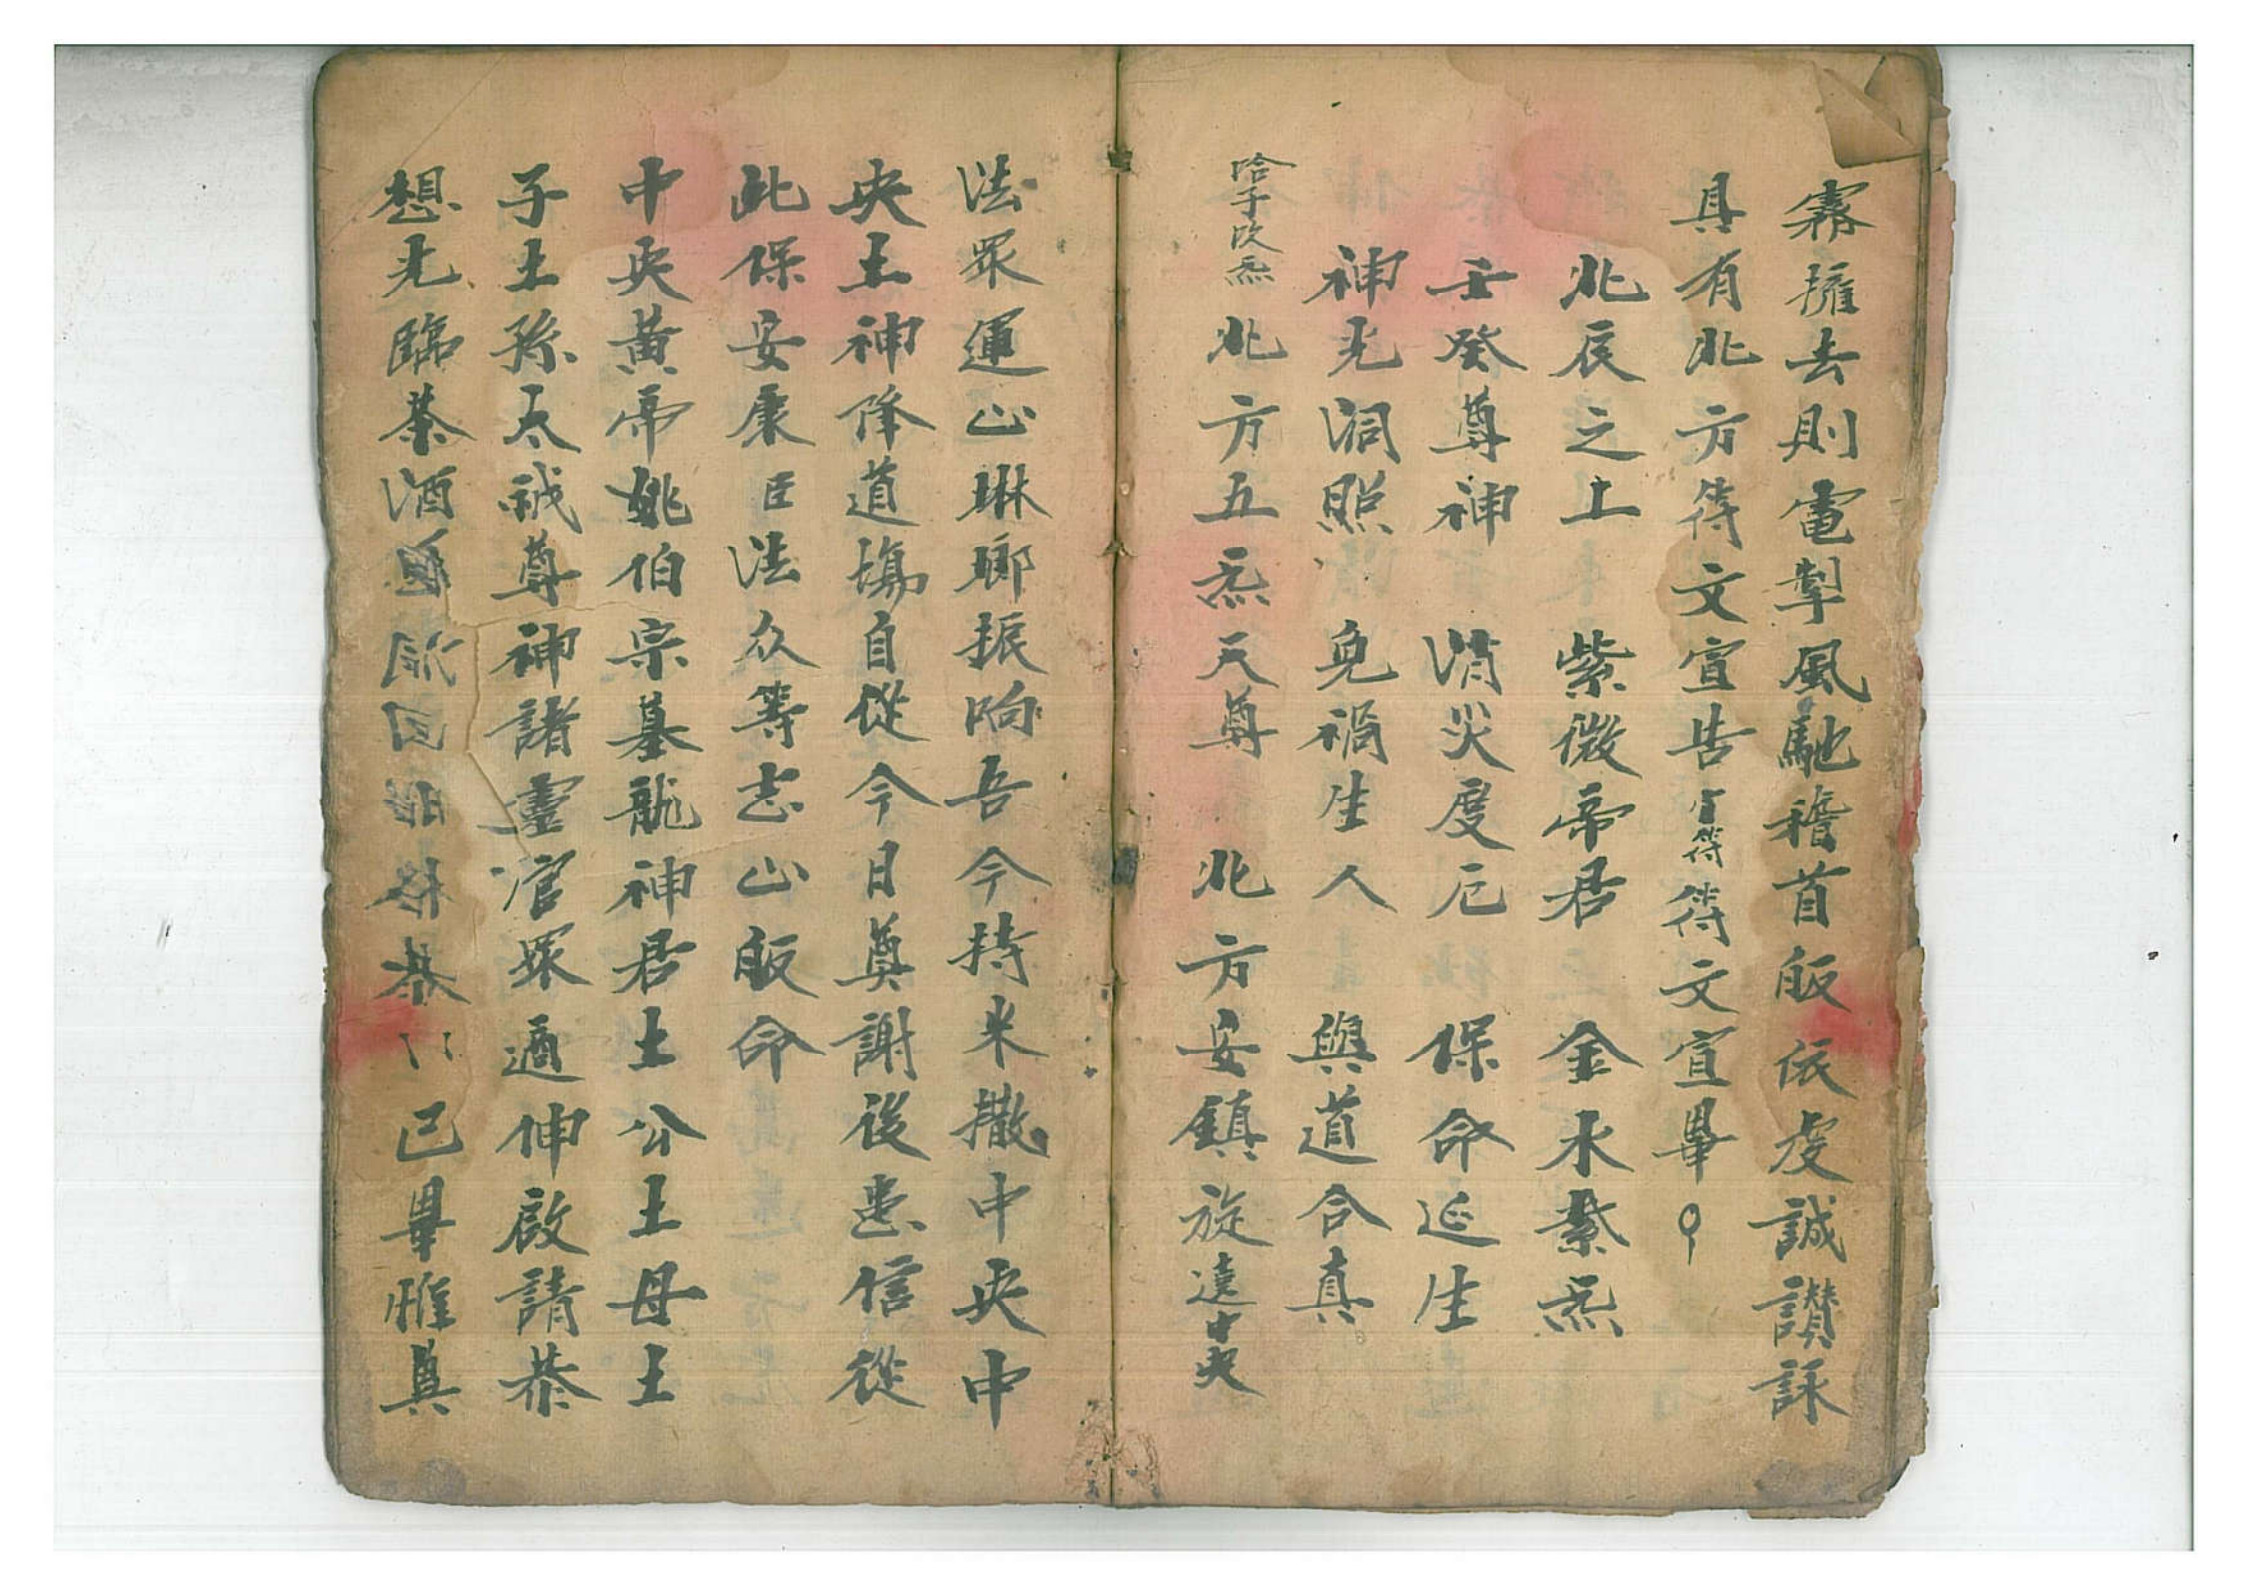 霧擁去則電掣風馳稽首皈依虔誠讚詠
具有北方待文宣告待文宣畢
北辰之上 紫微帝君 金水素炁
壬癸尊神 消災度厄 保命延生
神光洞照 免禍生人 與道合真
北方五炁天尊 北方安鎮旋遶中央
法眾運心琳瑯振响吾今持米撒中央中
央土神降道場自從今日奠謝後患信從
此保安康臣法众等志心皈命
中央黃帝姚伯宗墓龍神君土公土母土
子土孫太誠尊神諸靈官眾適伸啟請恭
想光臨茶酒 恭 已畢惟真